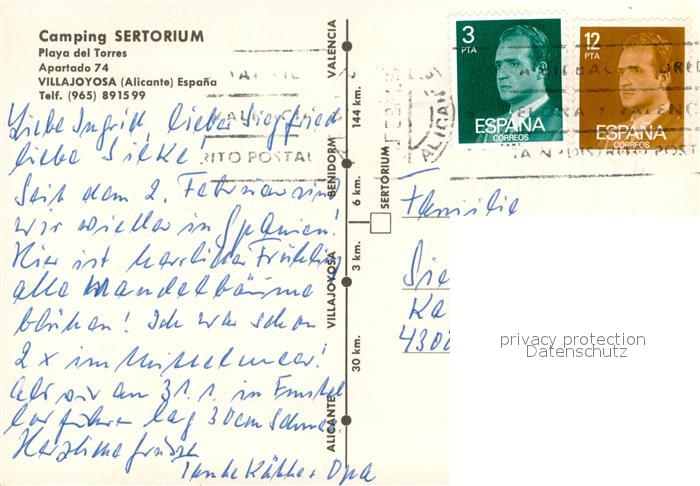 Camping SERTORIUM
Playa del Torres
Apartado 74
VILLAJOYOSA (Alicante) España
Telf. (965) 891599
Liebe Ingrid, lieber Siegfried
liebe Silke!
Seit dem 2. Februar sind
wir wieder in Spanien!
Hier ist herrlicher Frühling
alle Mandelbäume
blühen! Ich war schon
2 x im Mittelmeer!
Als wir am 31.1. in
losfuhren lag 30cm Schnee.
Herzliche Grüsse
Tante Käthe + Opa
VALENCIA
144 km.
BENIDORM
6 km.
SERTORIUM
3 km.
VILLAJOYOSA
30 km.
ALICANTE
3
PTA
ESPAÑA
CORREOS
12
PTA
ESPAÑA
CORREOS
ALICANTE
RITO POSTAL
Familie
Sie
Ka
430
privacy protection
Datenschutz